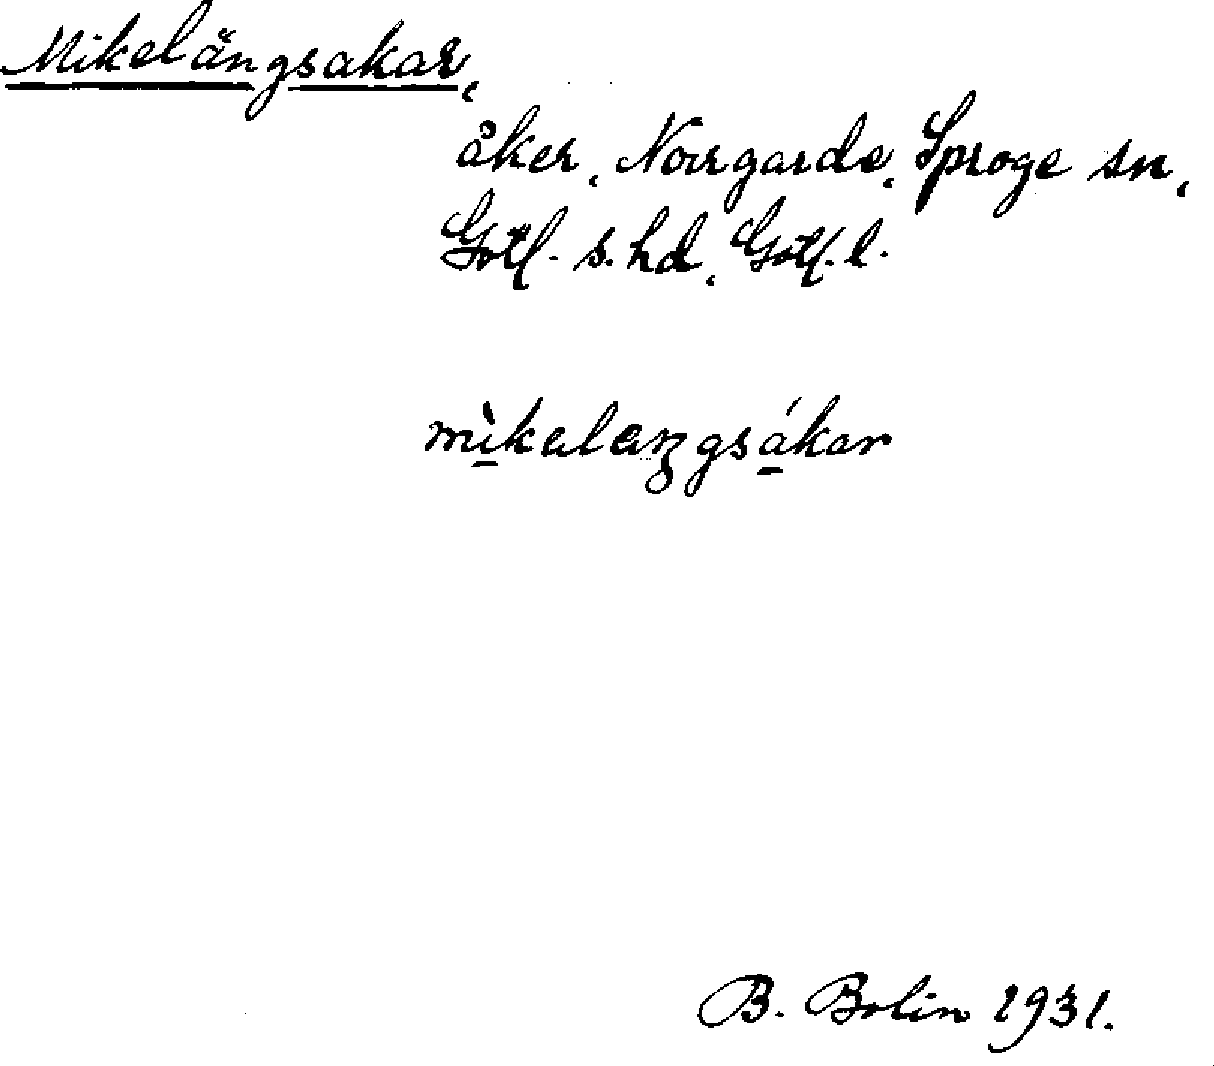 Mikelängsakar,
åker, Norrgarde, Sproge sn,
Gotl. s. hd, Gotl. l.
mìkalaŋgsákar
B. Bolin 1931.